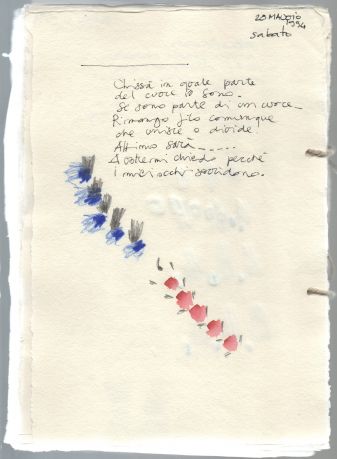 28 MAGGIO
1994
sabato
Chissà in quale parte
del cuore io sono.
Se sono parte di un cuore_
Rimango filo comunque
che unisce o divide.
Attimo sarà
chiedo perché
I miei occhi sorridono.